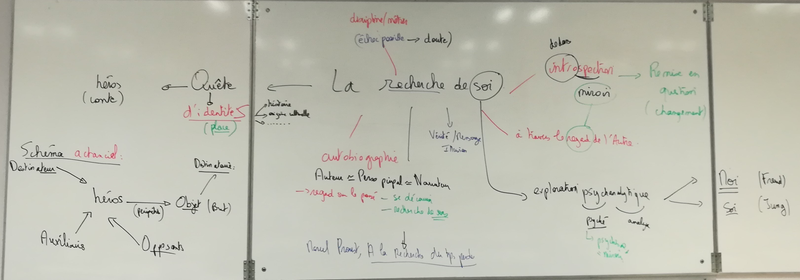 discipline/métier
(échec possible → doute)
dedans
introspection
miroir
Remise en
question
(changement)
héros
(conte)
Quête
d'identités
(place)
histoire
origine culturelle
La recherche de soi
à travers le regard de l'Autre
Vérité/Mensonge
Illusion
Schéma actanciel:
Destinateur
Destinataire
héros
(péripéties)
Objet (But)
Auxiliaires
Opposants
autobiographie
Auteur = Perso ppal = Narrateur
→ regard sur le passé
- se découvrir
- recherche de sens
Marcel Proust, A la recherche du tps perdu
exploration psychanalytique
psyché
analyse
Moi (Freud)
Soi (Jung)